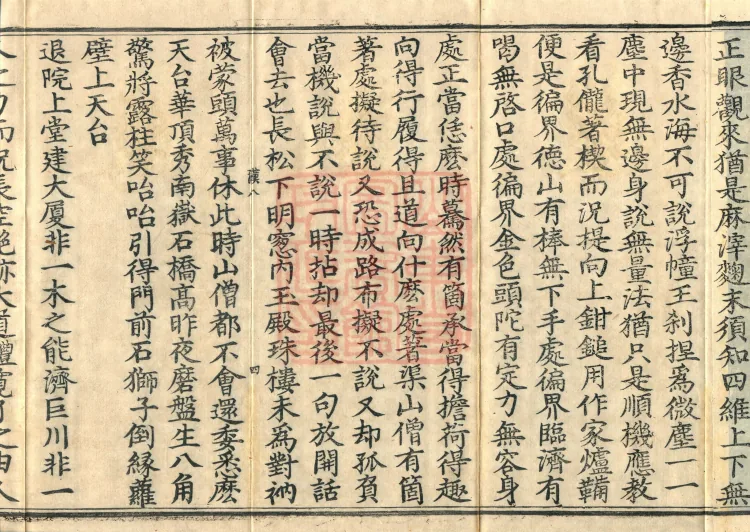 正眼觀來猶是麻滓麴末須知四維上下無
邊香水海不可說浮幢王剎捏爲微塵一一
塵中現無邊身說無量法猶只是順機應教
看孔儱著楔而況提向上鉗鎚用作家爐鞴
便是徧界德山有棒無下手處徧界臨濟有
喝無啓口處徧界金色頭陀有定力無容身
處正當恁麼時驀然有箇承當得擔荷得趣
向得行履得且道向什麼處著渠山僧有箇
著處擬待說又恐成路布擬不說又却孤負
當機說與不說一時拈却最後一句放開話
會去也長松下明窓內玉殿珠樓未爲對衲
漢八 四
被蒙頭萬事休此時山僧都不會還委悉麼
天台華頂秀南嶽石橋高昨夜磨盤生八角
驚將露柱笑咍咍引得門前石獅子倒緣蘿
壁上天台
退院上堂建大厦非一木之能濟巨川非一
人之力而況長空絕跡大道體寬了之由人